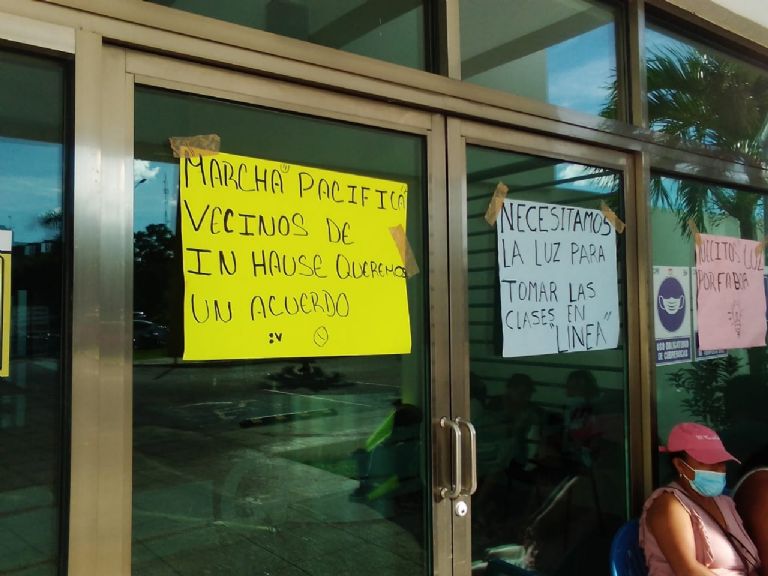 MARCHA "PACIFICA"
VECINOS DE
IN HAUSE QUEREMOS
UN ACUERDO
:v
NECESITAMOS
LA LUZ PARA
TOMAR LAS
CLASES EN
"LINEA"
NECITOS LUZ
PORFABOR
USO OBLIGATORIO
DE CUBREBOCAS